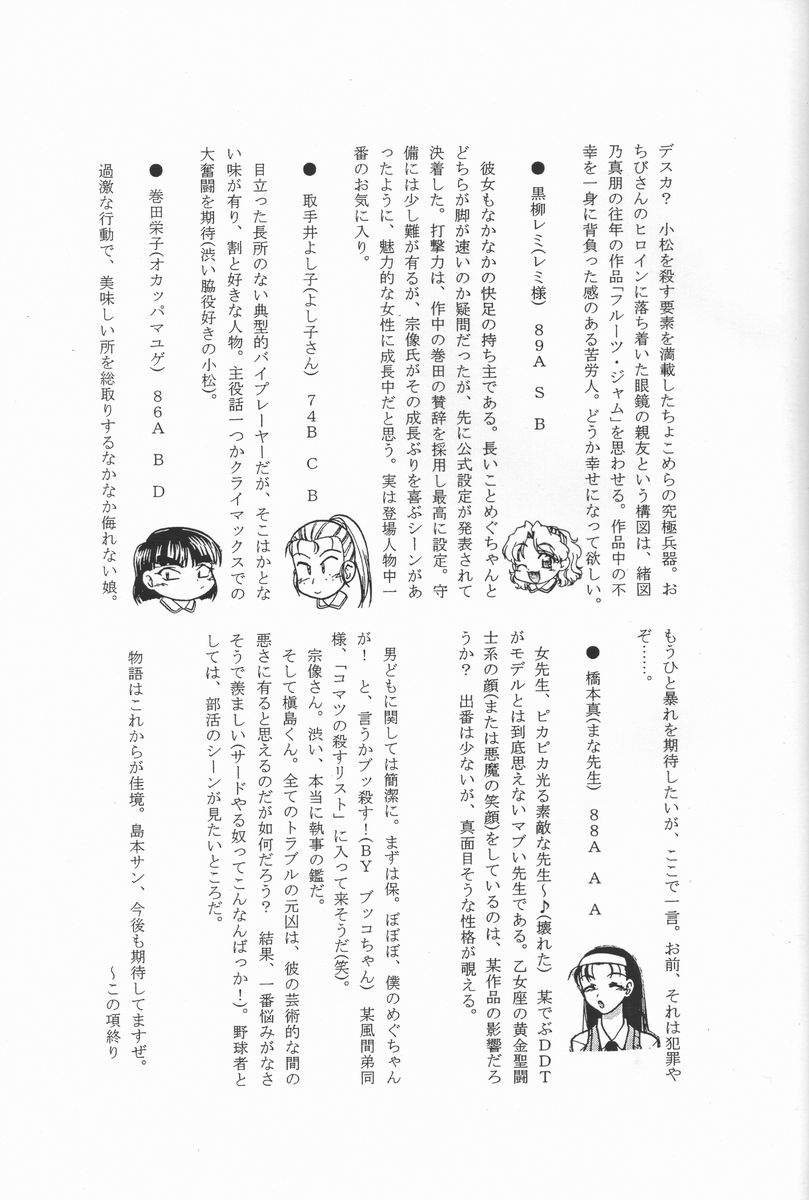 デスカ?　小松を殺す要素を満載したちょこめらの究極兵器。お
ちびさんのヒロインに落ち着いた眼鏡の親友という構図は、緒図
乃真朋の往年の作品「フルーツ・ジャム」を思わせる。作品中の不
幸を一身に背負った感のある苦労人。どうか幸せになって欲しい。
●　黒柳レミ(レミ様)　89A　S　B
彼女もなかなかの快足の持ち主である。長いことめぐちゃんと
どちらが脚が速いのか疑問だったが、先に公式設定が発表されて
決着した。打撃力は、作中の巻田の賛辞を採用し最高に設定。守
備には少し難が有るが、宗像氏がその成長ぶりを喜ぶシーンがあ
ったように、魅力的な女性に成長中だと思う。実は登場人物中一
番のお気に入り。
●　取手井よし子(よし子さん)　74B　C　B
目立った長所のない典型的バイプレーヤーだが、そこはかとな
い味が有り、割と好きな人物。主役話一つかクライマックスでの
大奮闘を期待(渋い脇役好きの小松)。
●　巻田栄子(オカッパマユゲ)　86A　B　D
過激な行動で、美味しい所を総取りするなかなか侮れない娘。
もうひと暴れを期待したいが、ここで一言。お前、それは犯罪や
ぞ……。
●　橋本真(まな先生)　88A　A　A
女先生、ピカピカ光る素敵な先生～♪(壊れた)　某でぶDDT
がモデルとは到底思えないマブい先生である。乙女座の黄金聖闘
士系の顔(または悪魔の笑顔)をしているのは、某作品の影響だろ
うか?　出番は少ないが、真面目そうな性格が覗える。
男どもに関しては簡潔に。まずは保。ぼぼぼ、僕のめぐちゃん
が!　と、言うかブッ殺す!(BY　ブッコちゃん)　某風間弟同
様、「コマツの殺すリスト」に入って来そうだ(笑)。
宗像さん。渋い、本当に執事の鑑だ。
そして槇島くん。全てのトラブルの元凶は、彼の芸術的な間の
悪さに有ると思えるのだが如何だろう?　結果、一番悩みがなさ
そうで羨ましい(サードやる奴ってこんなんばっか!)。野球者と
しては、部活のシーンが見たいところだ。
物語はこれからが佳境。島本サン、今後も期待してますぜ。
～この項終り